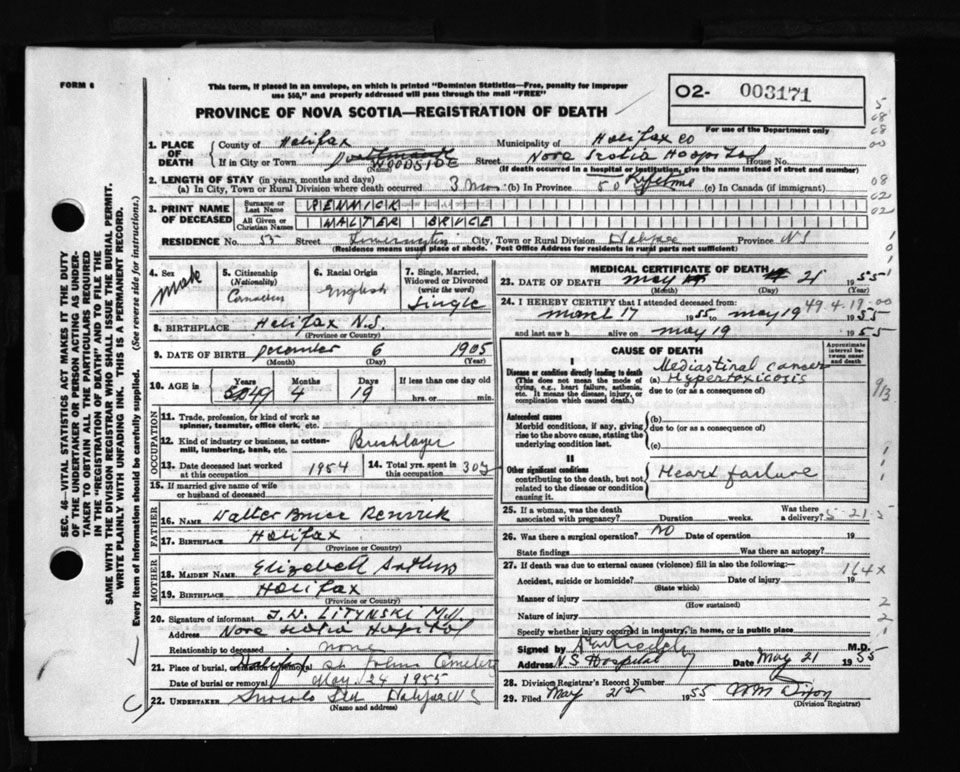 FORM 6
This form, if placed in an envelope, on which is printed "Dominion Statistics—Free, penalty for improper
use $50," and properly addressed will pass through the mail "FREE"
PROVINCE OF NOVA SCOTIA—REGISTRATION OF DEATH
O2- 003171
For use of the Department only
1. PLACE OF DEATH County of Halifax Municipality of Halifax co
If in City or Town WOODSIDE (Name) Street Nova Scotia Hospital House No.
(If death occurred in a hospital or institution, give the name instead of street and number)
2. LENGTH OF STAY (in years, months and days)
(a) In City, Town or Rural Division where death occurred 3 mos (b) In Province 50 Lifetime (c) In Canada (if immigrant)
3. PRINT NAME OF DECEASED Surname or Last Name RENWICK
All Given or Christian Names WALTER BRUCE
RESIDENCE No. 55 Street City, Town or Rural Division Halifax Province NS
(Residence means usual place of abode. Post Office Address for residents in rural parts not sufficient)
4. Sex Male
5. Citizenship (Nationality) Canadian
6. Racial Origin English
7. Single, Married, Widowed or Divorced (write the word) Single
8. BIRTHPLACE Halifax N.S.
9. DATE OF BIRTH December 6 1905
(Month) (Day) (Year)
10. AGE in Years 49 Months 4 Days 19 If less than one day old hrs. or min.
OCCUPATION
11. Trade, profession, or kind of work as spinner, teamster, office clerk, etc.
12. Kind of industry or business, as cotton-mill, lumbering, bank, etc. Bricklayer
13. Date deceased last worked at this occupation 1954
14. Total yrs. spent in this occupation 30 y
15. If married give name of wife or husband of deceased
FATHER
16. NAME Walter Bruce Renwick
17. BIRTHPLACE Halifax
(Province or Country)
MOTHER
18. MAIDEN NAME Elizabeth
19. BIRTHPLACE Halifax
(Province or Country)
20. Signature of informant J. W. LITYNSKI M.D.
Address Nova Scotia Hospital
Relationship to deceased none
21. Place of burial, cremation or removal Halifax St Johns Cemetery
Date of burial or removal May 24 1955
22. UNDERTAKER Snows Ltd Halifax N S
(Name and address)
MEDICAL CERTIFICATE OF DEATH
23. DATE OF DEATH May 21 1955
(Month) (Day) (Year)
24. I HEREBY CERTIFY that I attended deceased from:
49.4.19-00
March 17 1955 to May 19 1955
and last saw h alive on May 19 1955
CAUSE OF DEATH
Approximate interval between onset and death
I
Disease or condition directly leading to death
(This does not mean the mode of dying, e.g., heart failure, asthenia, etc. It means the disease, injury, or complication which caused death.)
Mediastinal cancer
(a) Hypertoxicosis
due to (or as a consequence of)
Antecedent causes
Morbid conditions, if any, giving rise to the above cause, stating the underlying condition last.
(b)
due to (or as a consequence of)
(c)
II
Other significant conditions
contributing to the death, but not related to the disease or condition causing it.
Heart failure
25. If a woman, was the death associated with pregnancy? Duration weeks. Was there a delivery?
5-21-5
26. Was there a surgical operation? NO Date of operation 19
State findings Was there an autopsy?
27. If death was due to external causes (violence) fill in also the following:— 164x
Accident, suicide or homicide? Date of injury 19
(State which)
Manner of injury
(How sustained)
Nature of injury
Specify whether injury occurred in industry, in home, or in public place
Signed by M.D.
Address N.S. Hospital Date May 21 1955
28. Division Registrar's Record Number
29. Filed May 21st 1955 WM Dixon
(Division Registrar)
SEC. 46—VITAL STATISTICS ACT MAKES IT THE DUTY
OF THE UNDERTAKER OR PERSON ACTING AS UNDER-
TAKER TO OBTAIN ALL THE PARTICULARS REQUIRED
IN THE "REGISTRATION OF DEATH" AND TO FILE THE
SAME WITH THE DIVISION REGISTRAR WHO SHALL ISSUE THE BURIAL PERMIT.
WRITE PLAINLY WITH UNFADING INK. THIS IS A PERMANENT RECORD.
Every item of information should be carefully supplied. (See reverse side for instructions.)